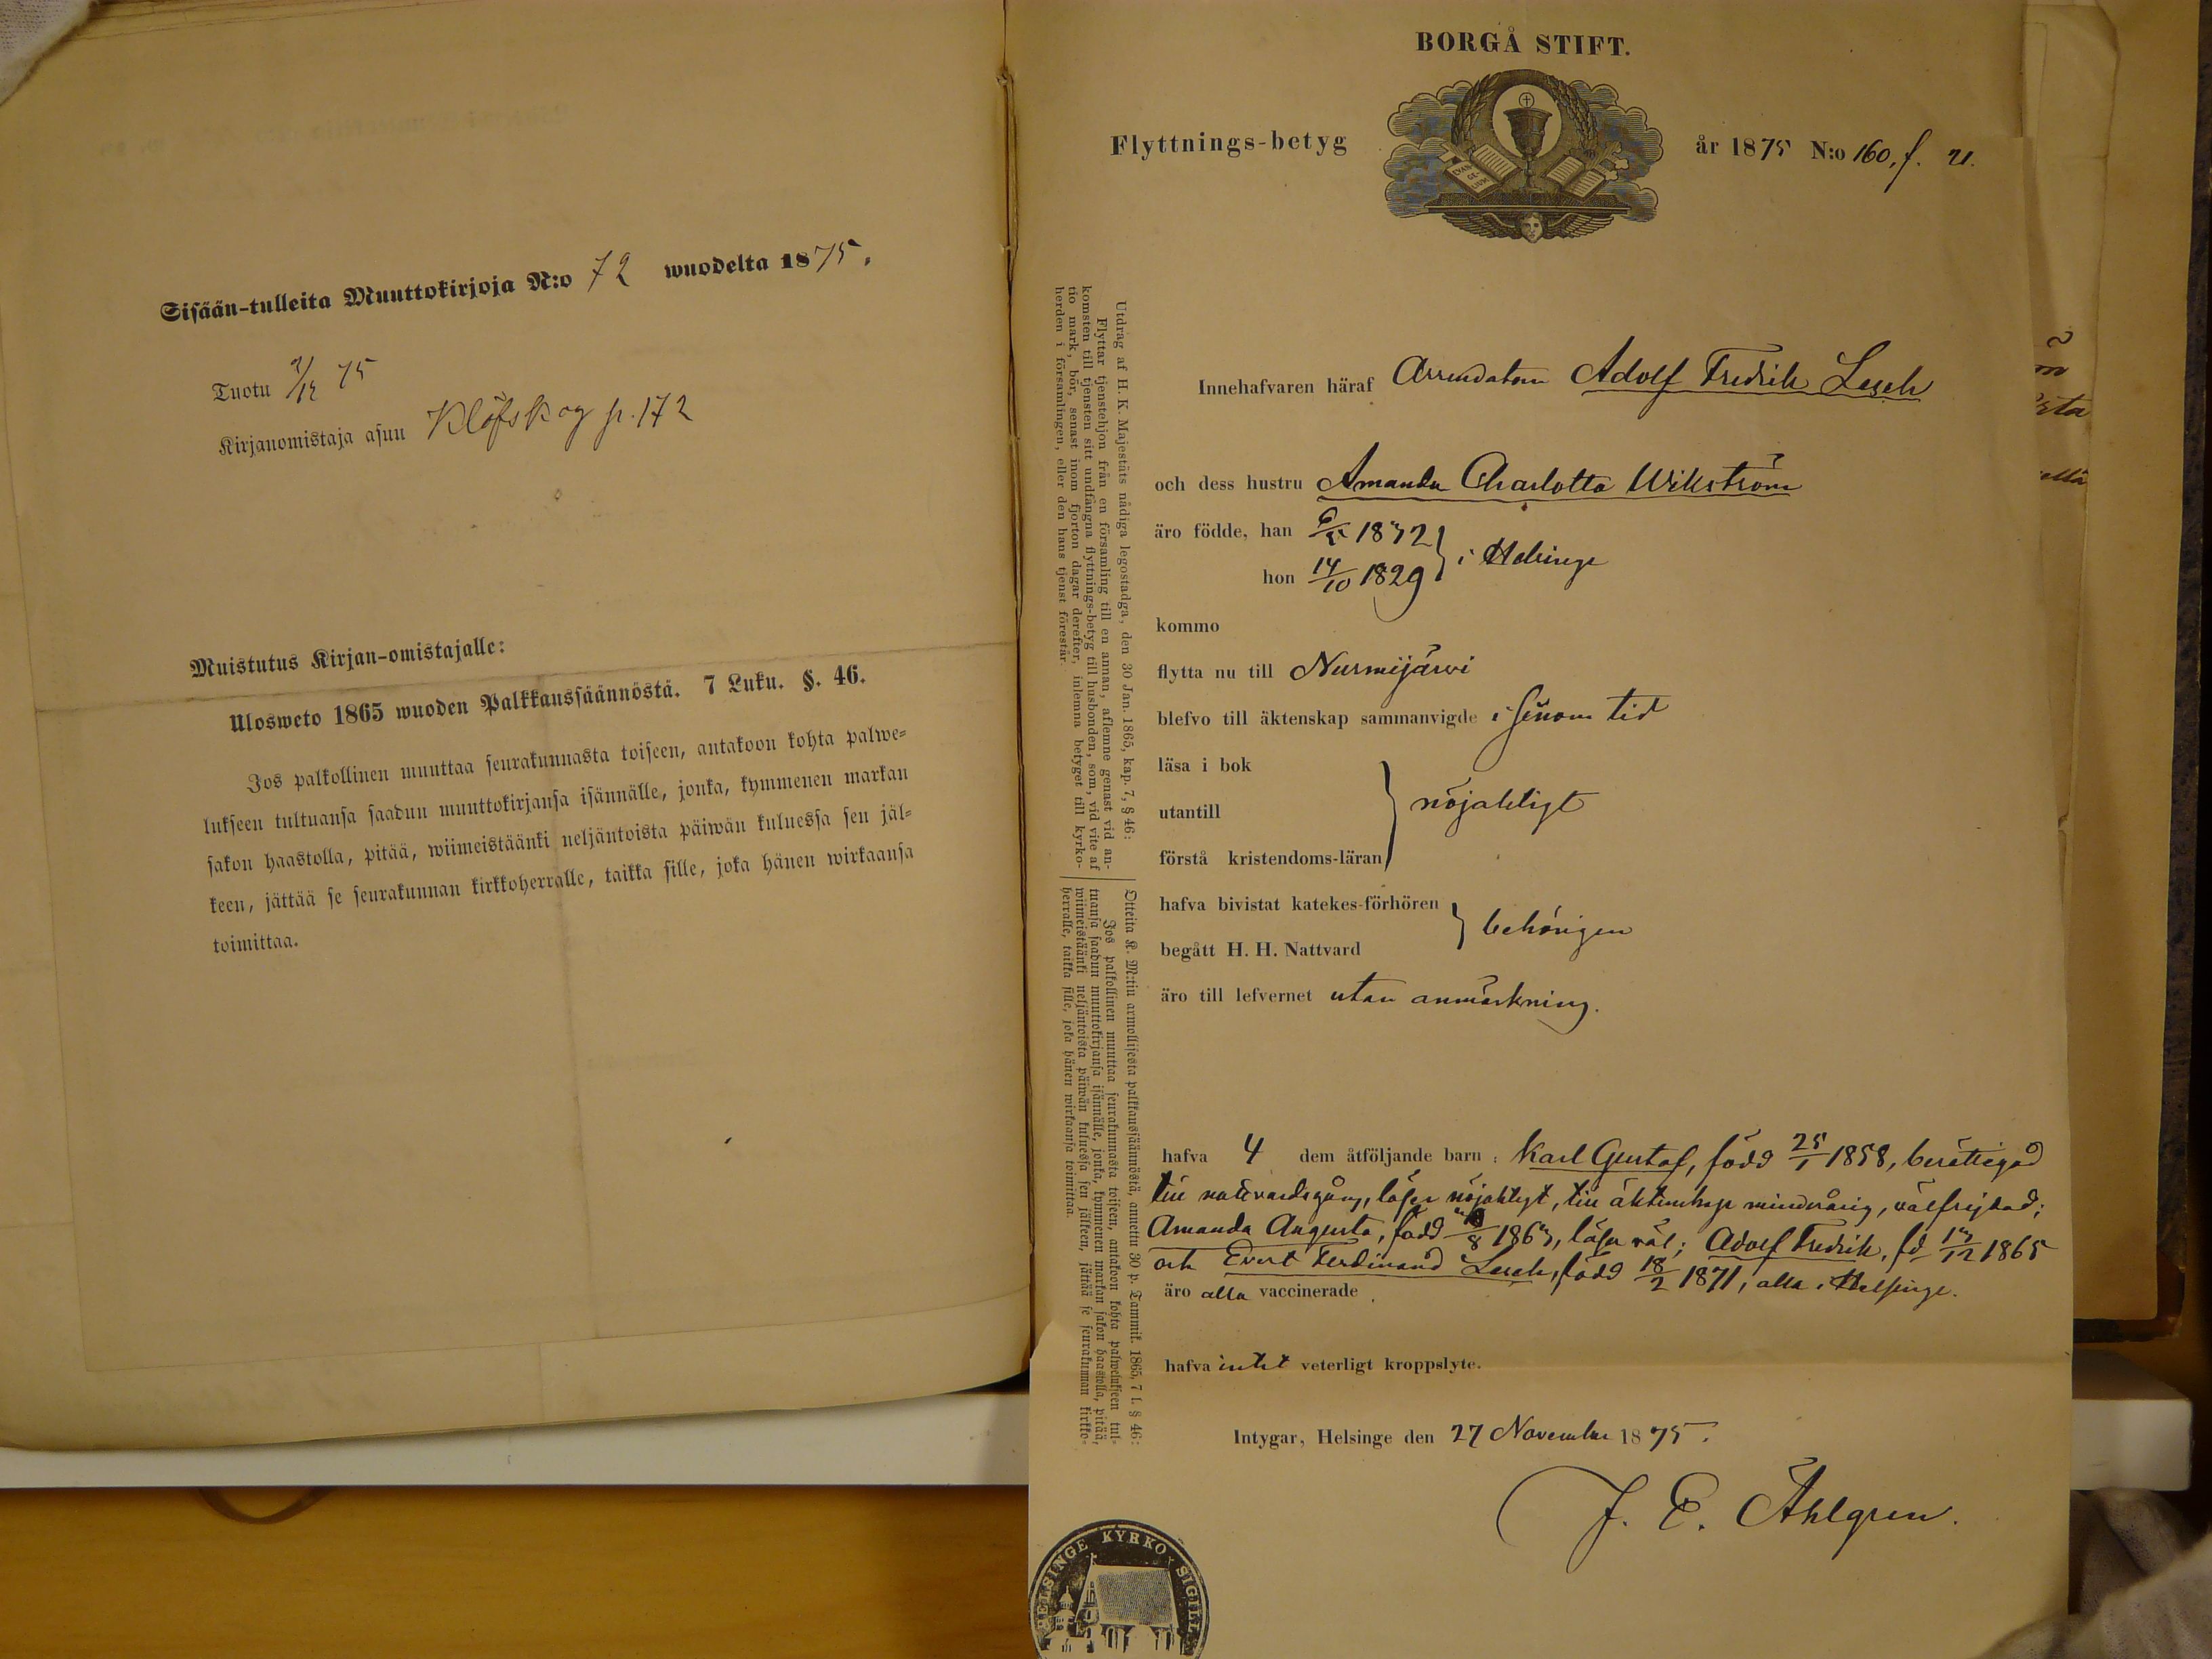 Sisään-tulleita Muuttokirjoja N:o 72 wuodelta 1875.
Tuotu 2/12 75
Kirjanomistaja asuu Klöfskog p. 172
Muistutus Kirjan-omistajalle:
Ulosweto 1865 wuoden Palkkaussäännöstä. 7 Luku. §. 46.
Jos palkollinen muuttaa seurakunnasta toiseen, antakoon kohta palwe-
lukseen tultuansa saadun muuttokirjansa isännälle, jonka, kymmenen markan
sakon haastolla, pitää, wiimeistäänki neljäntoista päiwän kuluessa sen jäl-
keen, jättää se seurakunnan kirkkoherralle, taikka sille, joka hänen wirkaansa
toimittaa.
BORGÅ STIFT.
Flyttnings-betyg
EVAN
GE-
LIUM
år 1875 N:o 160, f. 21.
Utdrag af H. K. Majestäts nådiga legostadga, den 30 Jan. 1865, kap. 7, § 46:
Flyttar tjenstehjon från en församling till en annan, aflemne genast vid an-
komsten till tjensten sitt undfångna flyttnings-betyg till husbonden, som, vid vite af
tio mark, bör, senast inom fjorton dagar derefter, inlemna betyget till kyrko-
herden i församlingen, eller den hans tjenst förestår.
Otteita K. M:tin armollisesta palkkaussäännöstä, annettu 30 p. Tammik. 1865, 7 l. § 46:
Jos palkollinen muuttaa seurakunnasta toiseen, antakoon kohta palwelukseen tul-
tuansa saadun muuttokirjansa isännälle, jonka, kymmenen markan sakon haastolla, pitää,
wiimeistäänki neljäntoista päiwän kuluessa sen jälkeen, jättää se seurakunnan kirkko-
herralle, taikka sille, joka hänen wirkaansa toimittaa.
Innehafvaren häraf Arrendatorn Adolf Fredrik Lesch
och dess hustru Amanda Charlotta Wikström
äro födde, han 6/5 1832 } i Helsinge
hon 14/10 1829
kommo
flytta nu till Nurmijärvi
blefvo till äktenskap sammanvigde i sinom tid
läsa i bok
utantill } nöjaktigt
förstå kristendoms-läran
hafva bivistat katekes-förhören } behörigen
begått H. H. Nattvard
äro till lefvernet utan anmärkning.
hafva 4 dem åtföljande barn: Karl Gustaf, född 25/1 1858, berättigad
till nattvardsgång, läser nöjaktigt, till äktenskap minderårig, välfrejdad;
Amanda Augusta, född /8 1863, läser väl; Adolf Fredrik, fd 13/12 1865
och Evert Ferdinand Lesch, född 18/2 1871, alla i Helsinge.
äro alla vaccinerade
hafva intet veterligt kroppslyte.
Intygar, Helsinge den 27 November 1875.
J. E. Åhlgren.
HELSINGE KYRKO SIGILL